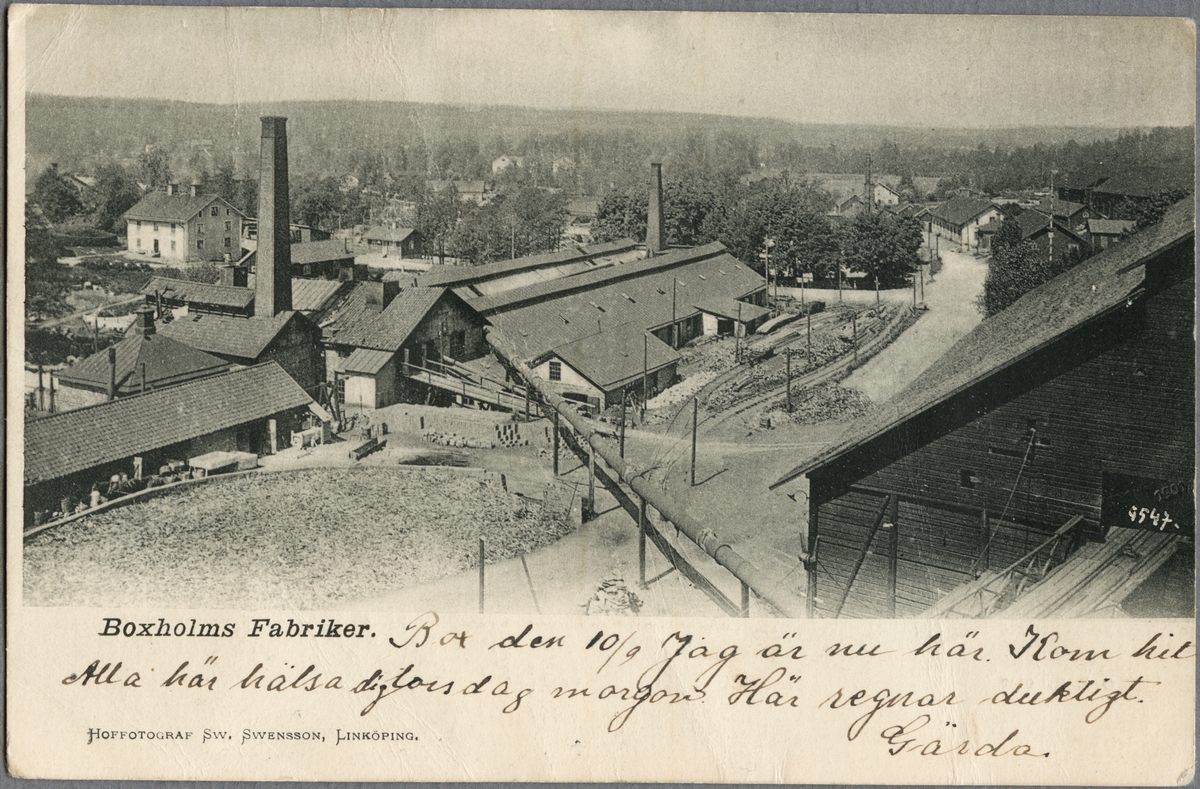 9547.
Boxholms Fabriker. Box den 10/9 Jag är nu här. Kom hit
Alla här hälsa dig torsdag morgon. Här regnar duktigt.
Gärda.
Hoffotograf Sw. Swensson, Linköping.